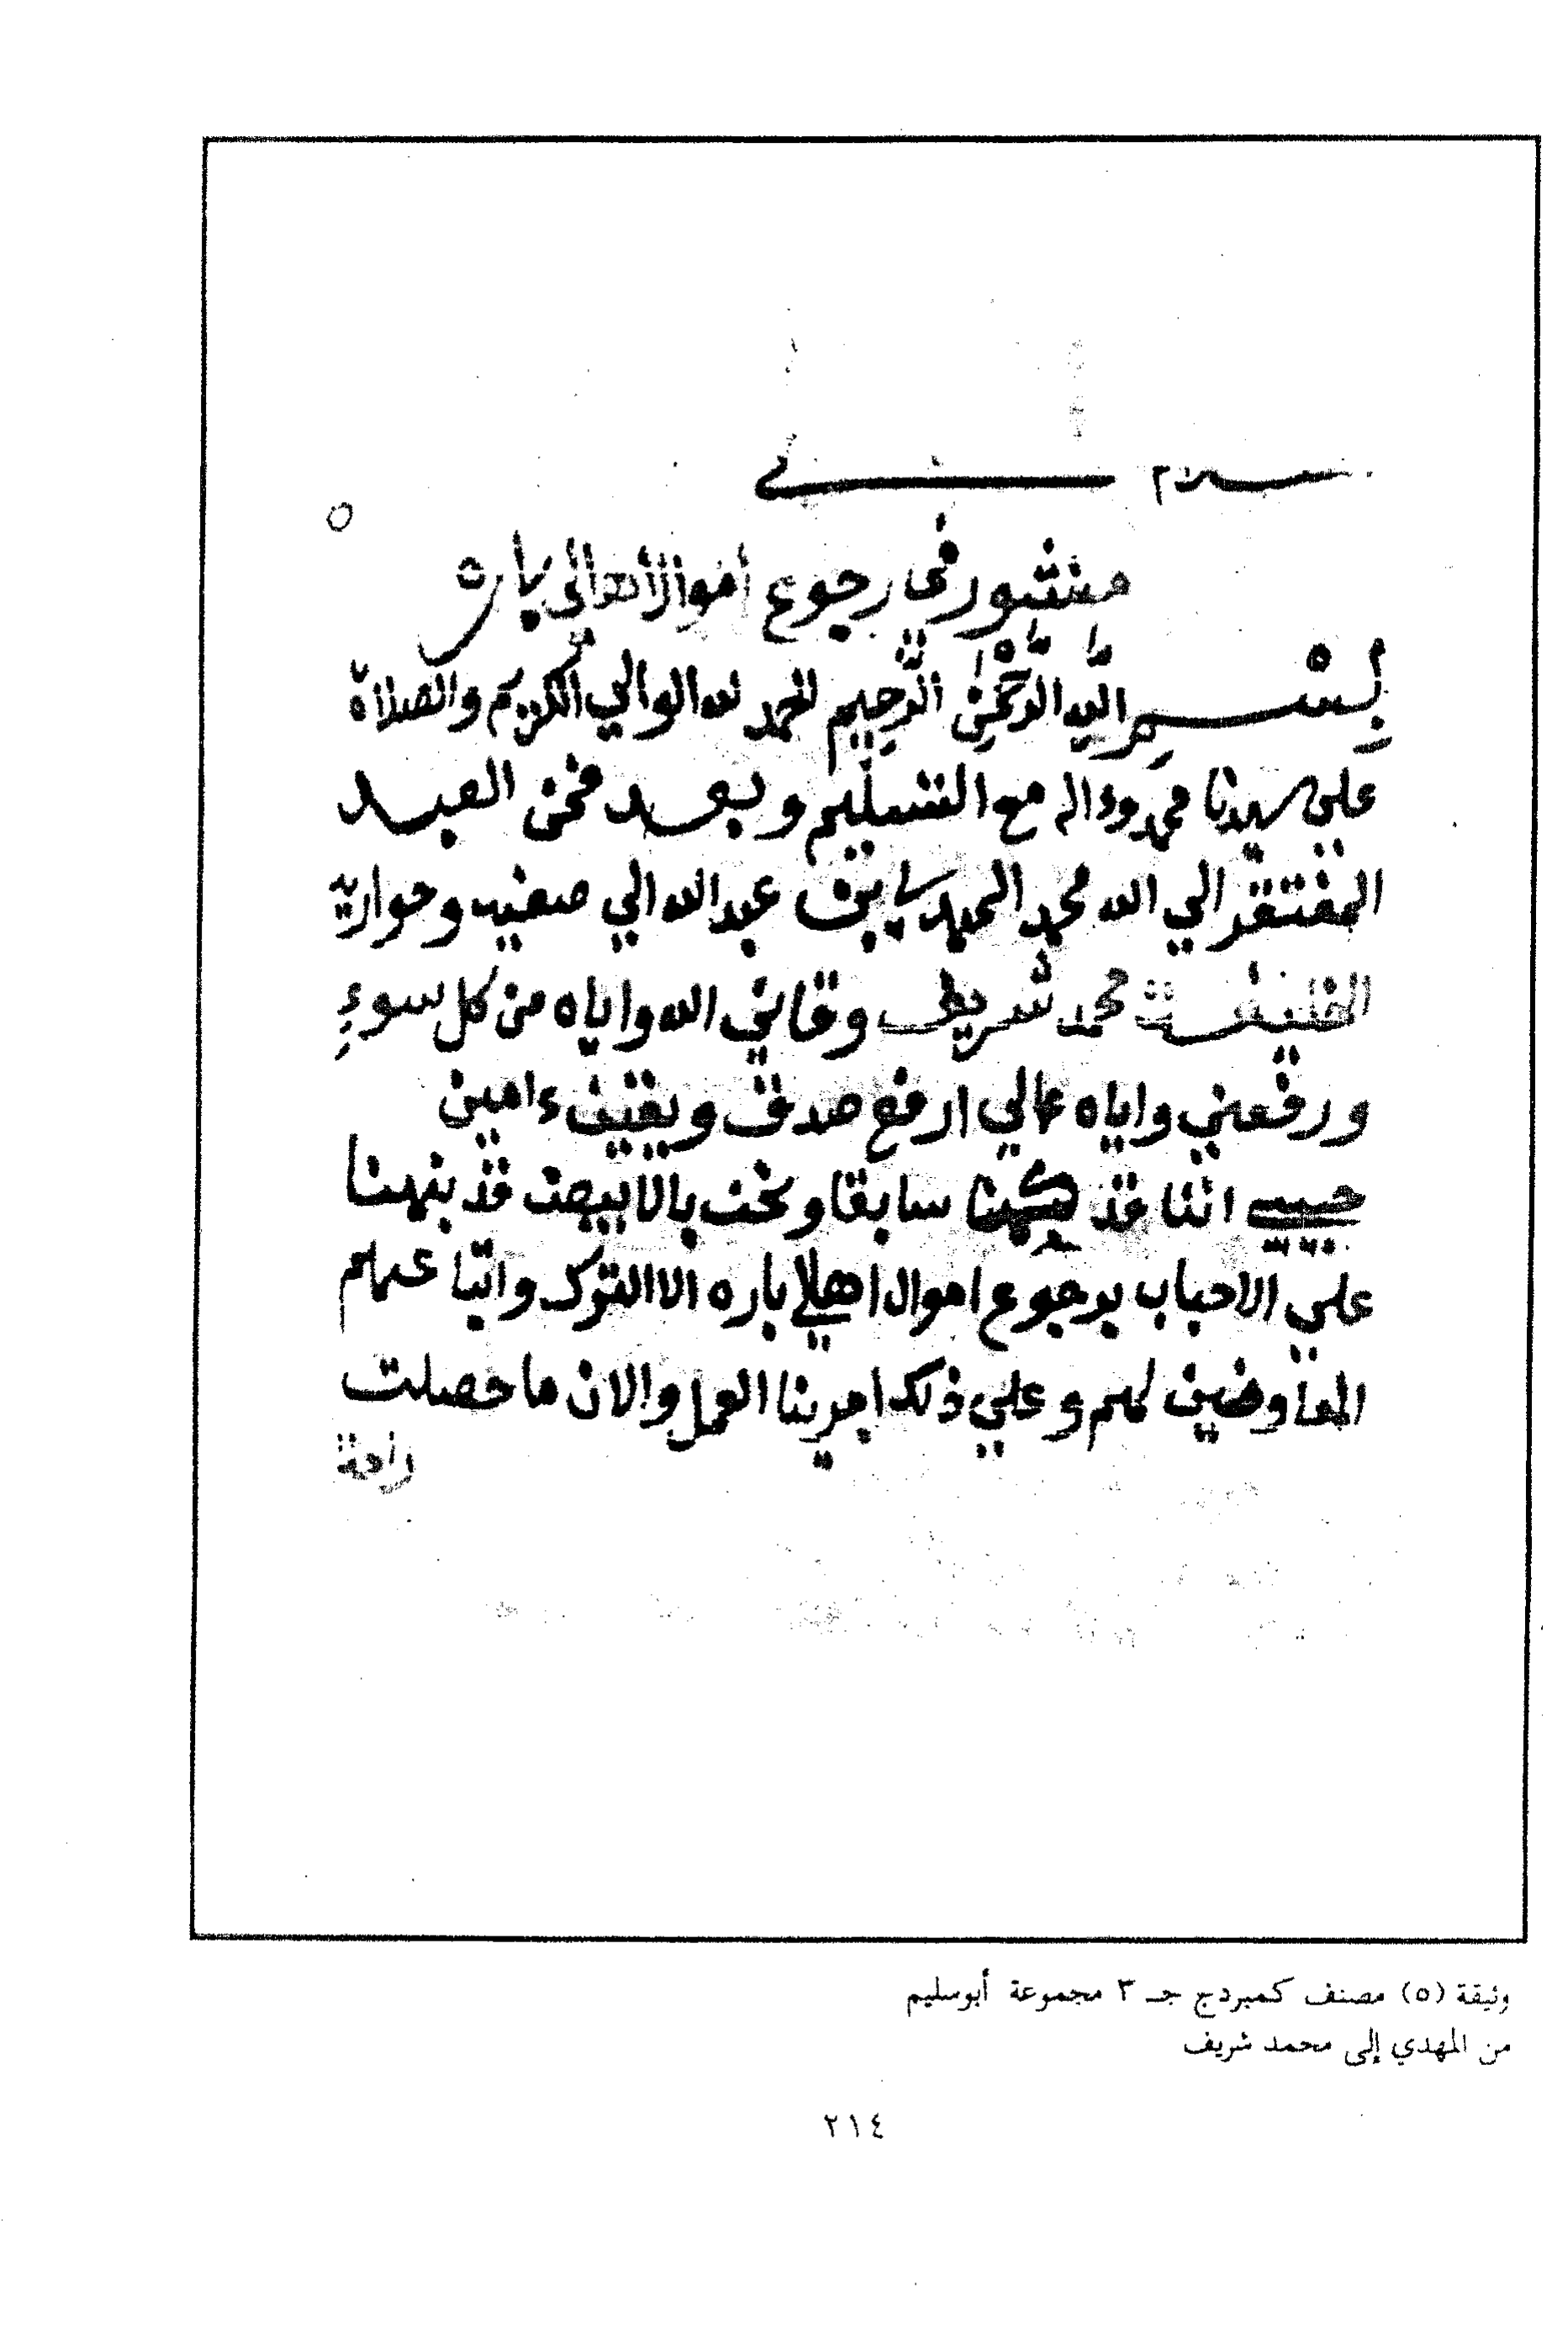 سلام
منشور في رجوع أموال أهالي باره
بِسْم اللّه الرّحْمٰن الرّحيم الحمد لله الوالي الكريم والصلاة
علي سيدنا محمد وءاله مع التسليم وبعد فمن العبد
المفتقر الي الله محمد المهدي ابن عبد الله الي صفيه وحواريه
الخليفة محمد شريف وقاني الله واياه من كل سوءِ
ورفعني واياه عالي ارفع صدق ويقين ءامين
حبيبي اننا قد سابقا ونحن بالابيض قد نبهنا
علي الاحباب برجوع اموال اهلي باره الا الترك واتباعهم
المعاوضين لهم وعلي ذلك اجرينا العمل والان ما حصلت
راحة
وثيقة (٥) مصنف كمبردج جـ ٣ مجموعة أبوسليم
من المهدي إلى محمد شريف
٢١٤